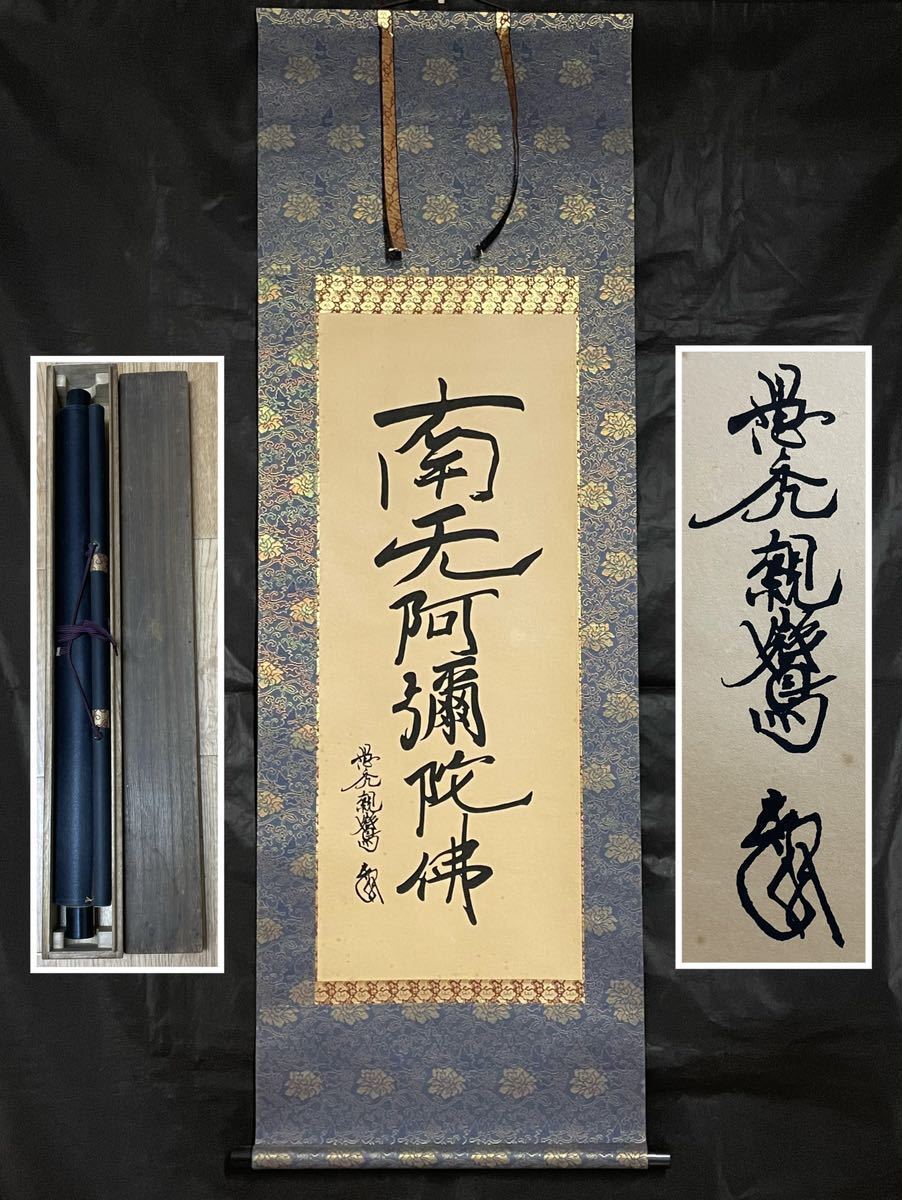 南无阿彌陀佛
愚禿親鸞
愚禿親鸞